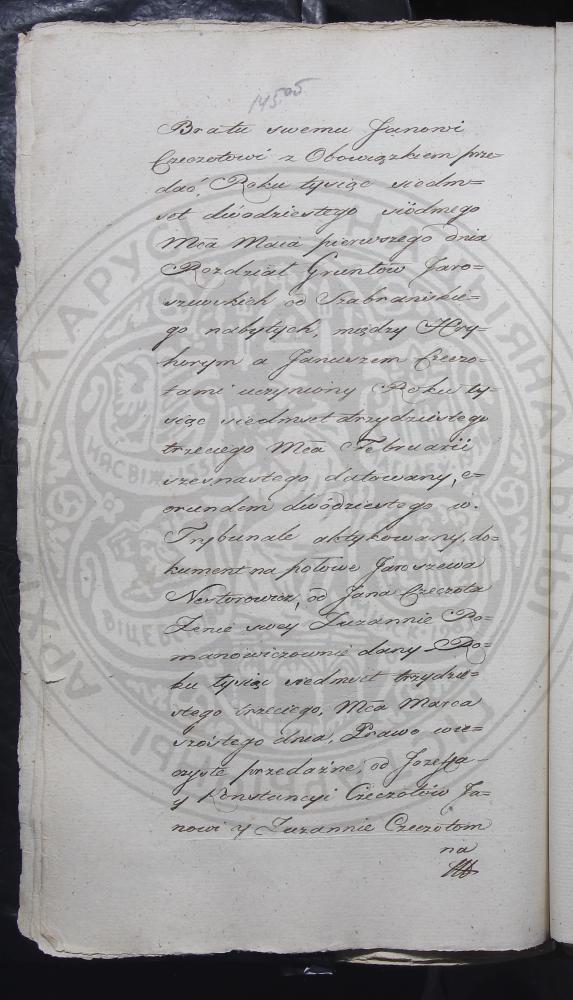 145.05
Bratu swemu Janowi
Czeczotowi z Obowiązkiem prze-
dać, Roku tysiąc siedm-
set dwódziestego siódmego
Mca Maia pierwszego dnia
Rozdział Gruntow Jaro-
szewskich od Szabranskie-
go nabytych, między Hry-
horym a Januszem Czeczo-
tami uczyniony Roku ty-
siąc siedmset trzydziestego
trzeciego Mca Februarii
szesnastego datowany, e-
orundem dwódziestego w.
Trybunale aktykowany, do-
kument na połowe Jaroszewa
Nestorowicz, od Jana Czeczota
Żenie swey Zuzannie Ro-
manowiczownie dany Ro-
ku tysiąc siedmset trzydzie-
stego trzeciego, Mca Marca
szóstego dnia, Prawo wie-
czyste przedażne, od Jozefa
y Konstancyi Czeczotów Ja-
nowi y Zuzannie Czeczotom
na